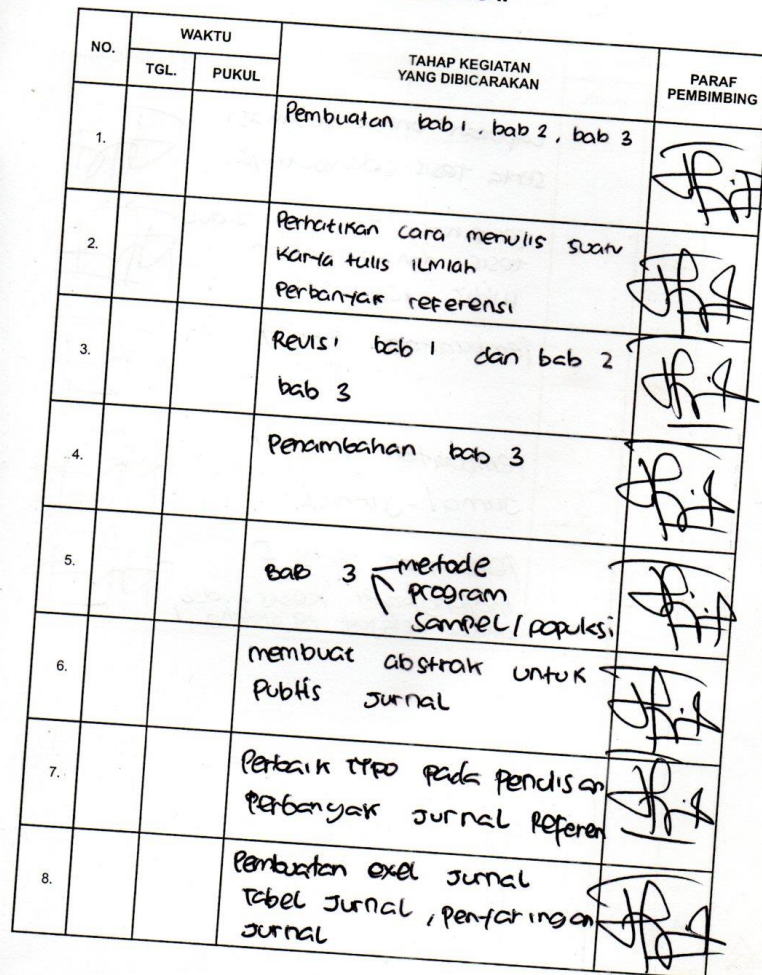 NO.
WAKTU
TGL.
PUKUL
TAHAP KEGIATAN
YANG DIBICARAKAN
PARAF
PEMBIMBING
1.
Pembuatan bab 1, bab 2, bab 3
2.
Perhatikan cara menulis suatu
Karya tulis ilmiah
Perbanyak referensi
3.
Revisi bab 1 dan bab 2
bab 3
4.
Penambahan bab 3
5.
BAB 3 metode
program
Sampel / populasi
6.
membuat abstrak untuk
Publis Jurnal
7.
Perbaik typo pada penulisan
Perbanyak Jurnal Referen
8.
Pembuatan exel Jurnal
Tabel Jurnal, penyaringan
Jurnal